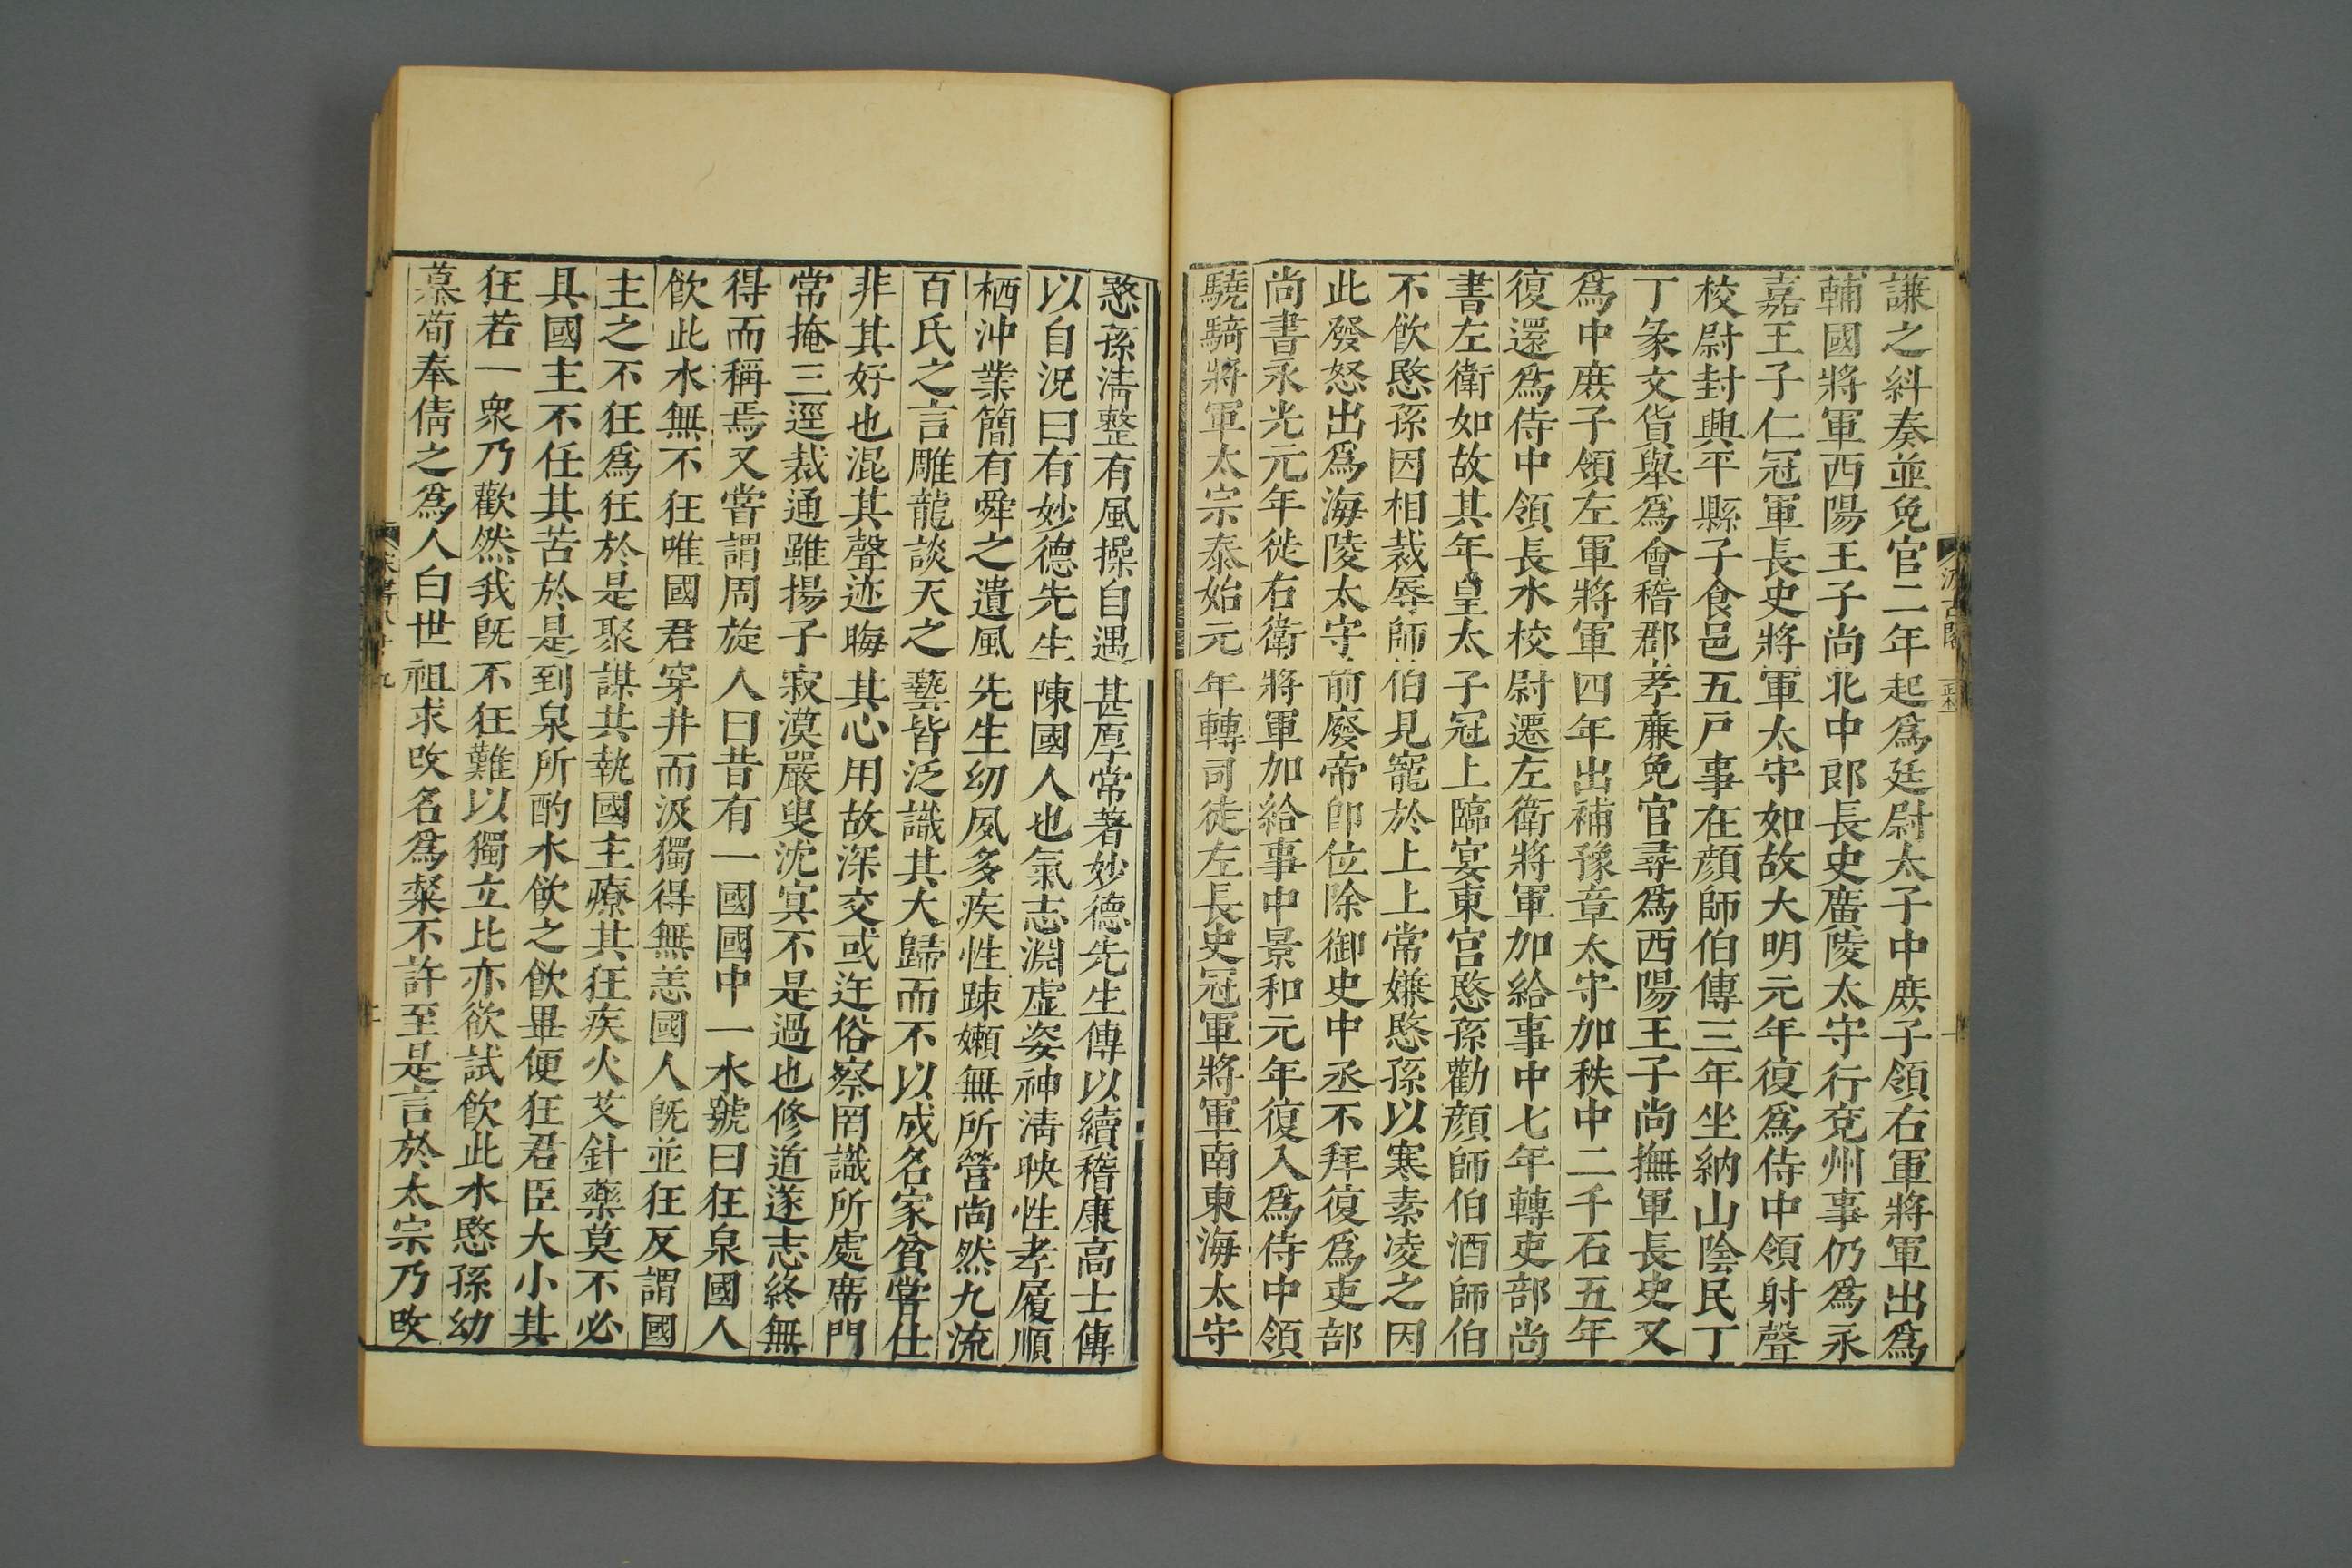 謙之糾奏並免官二年起爲廷尉太子中庶子領右軍將軍出爲
輔國將軍西陽王子尚北中郎長史廣陵太守行兗州事仍爲永
嘉王子仁冠軍長史將軍太守如故大明元年復爲侍中領射聲
校尉封興平縣子食邑五戸事在顔師伯傳三年坐納山陰民丁
丁彖文貨舉爲會稽郡孝廉免官尋爲西陽王子尚撫軍長史又
爲中庶子領左軍將軍四年出補豫章太守加秩中二千石五年
復還爲侍中領長水校尉遷左衛將軍加給事中七年轉吏部尚
書左衛如故其年皇太子冠上臨宴東宮愍孫勸顔師伯酒師伯
不飲愍孫因相裁辱師伯見寵於上上常嫌愍孫以寒素凌之因
此發怒出爲海陵太守前廢帝卽位除御史中丞不拜復爲吏部
尚書永光元年徙右衛將軍加給事中景和元年復入爲侍中領
驍騎將軍太宗泰始元年轉司徒左長史冠軍將軍南東海太守
愍孫淸整有風操自遇甚厚常著妙德先生傳以續嵇康高士傳
以自況曰有妙德先生陳國人也氣志淵虛姿神淸映性孝履順
栖沖業簡有舜之遺風先生幼夙多疾性踈嬾無所營尚然九流
百氏之言雕龍談天之藝皆泛識其大歸而不以成名家貧嘗仕
非其好也混其聲迹晦其心用故深交或迕俗察罔識所處席門
常掩三逕裁通雖揚子寂漠嚴叟沈冥不是過也修道遂志終無
得而稱焉又嘗謂周旋人曰昔有一國國中一水號曰狂泉國人
飲此水無不狂唯國君穿井而汲獨得無恙國人旣並狂反謂國
主之不狂爲狂於是聚謀共執國主療其狂疾火艾針藥莫不必
具國主不任其苦於是到泉所酌水飲之飲畢便狂君臣大小其
狂若一衆乃歡然我旣不狂難以獨立比亦欲試飲此水愍孫幼
慕荀奉倩之爲人白世祖求改名爲粲不許至是言於太宗乃改
汲古閣
宋書八十九